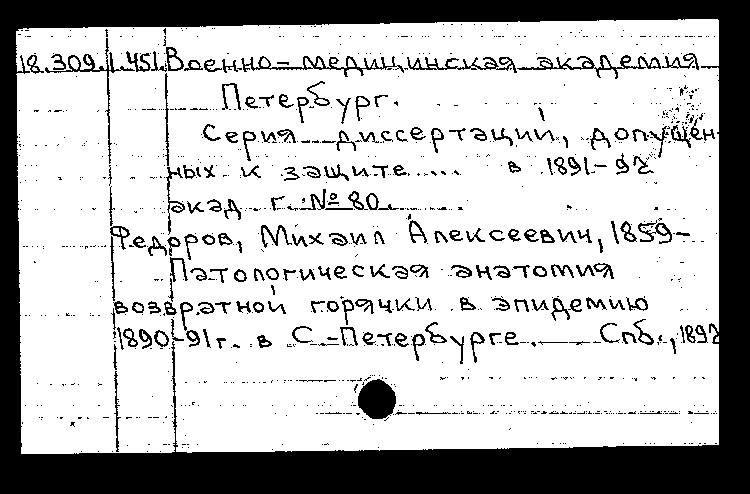 18.309.1.451. Военно-медицинская академия
Петербург.
Серия диссертаций, допущен-
ных к защите ... в 1891-92
акад г. № 80.
Федоров, Михаил Алексеевич, 1859-
Патологическая анатомия
возвратной горячки в эпидемию
1890-91 г. в С.-Петербурге. Спб., 1892